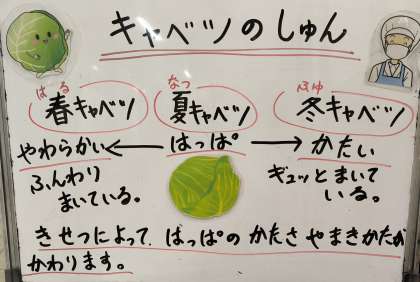 キャベツのしゅん
はる なつ ふゆ
春キャベツ 夏キャベツ 冬キャベツ
やわらかい はっぱ かたい
ふんわり
まいている。
ギュッとまいて
いる。
きせつによって、はっぱの かたさ やまきかたが
かわります。